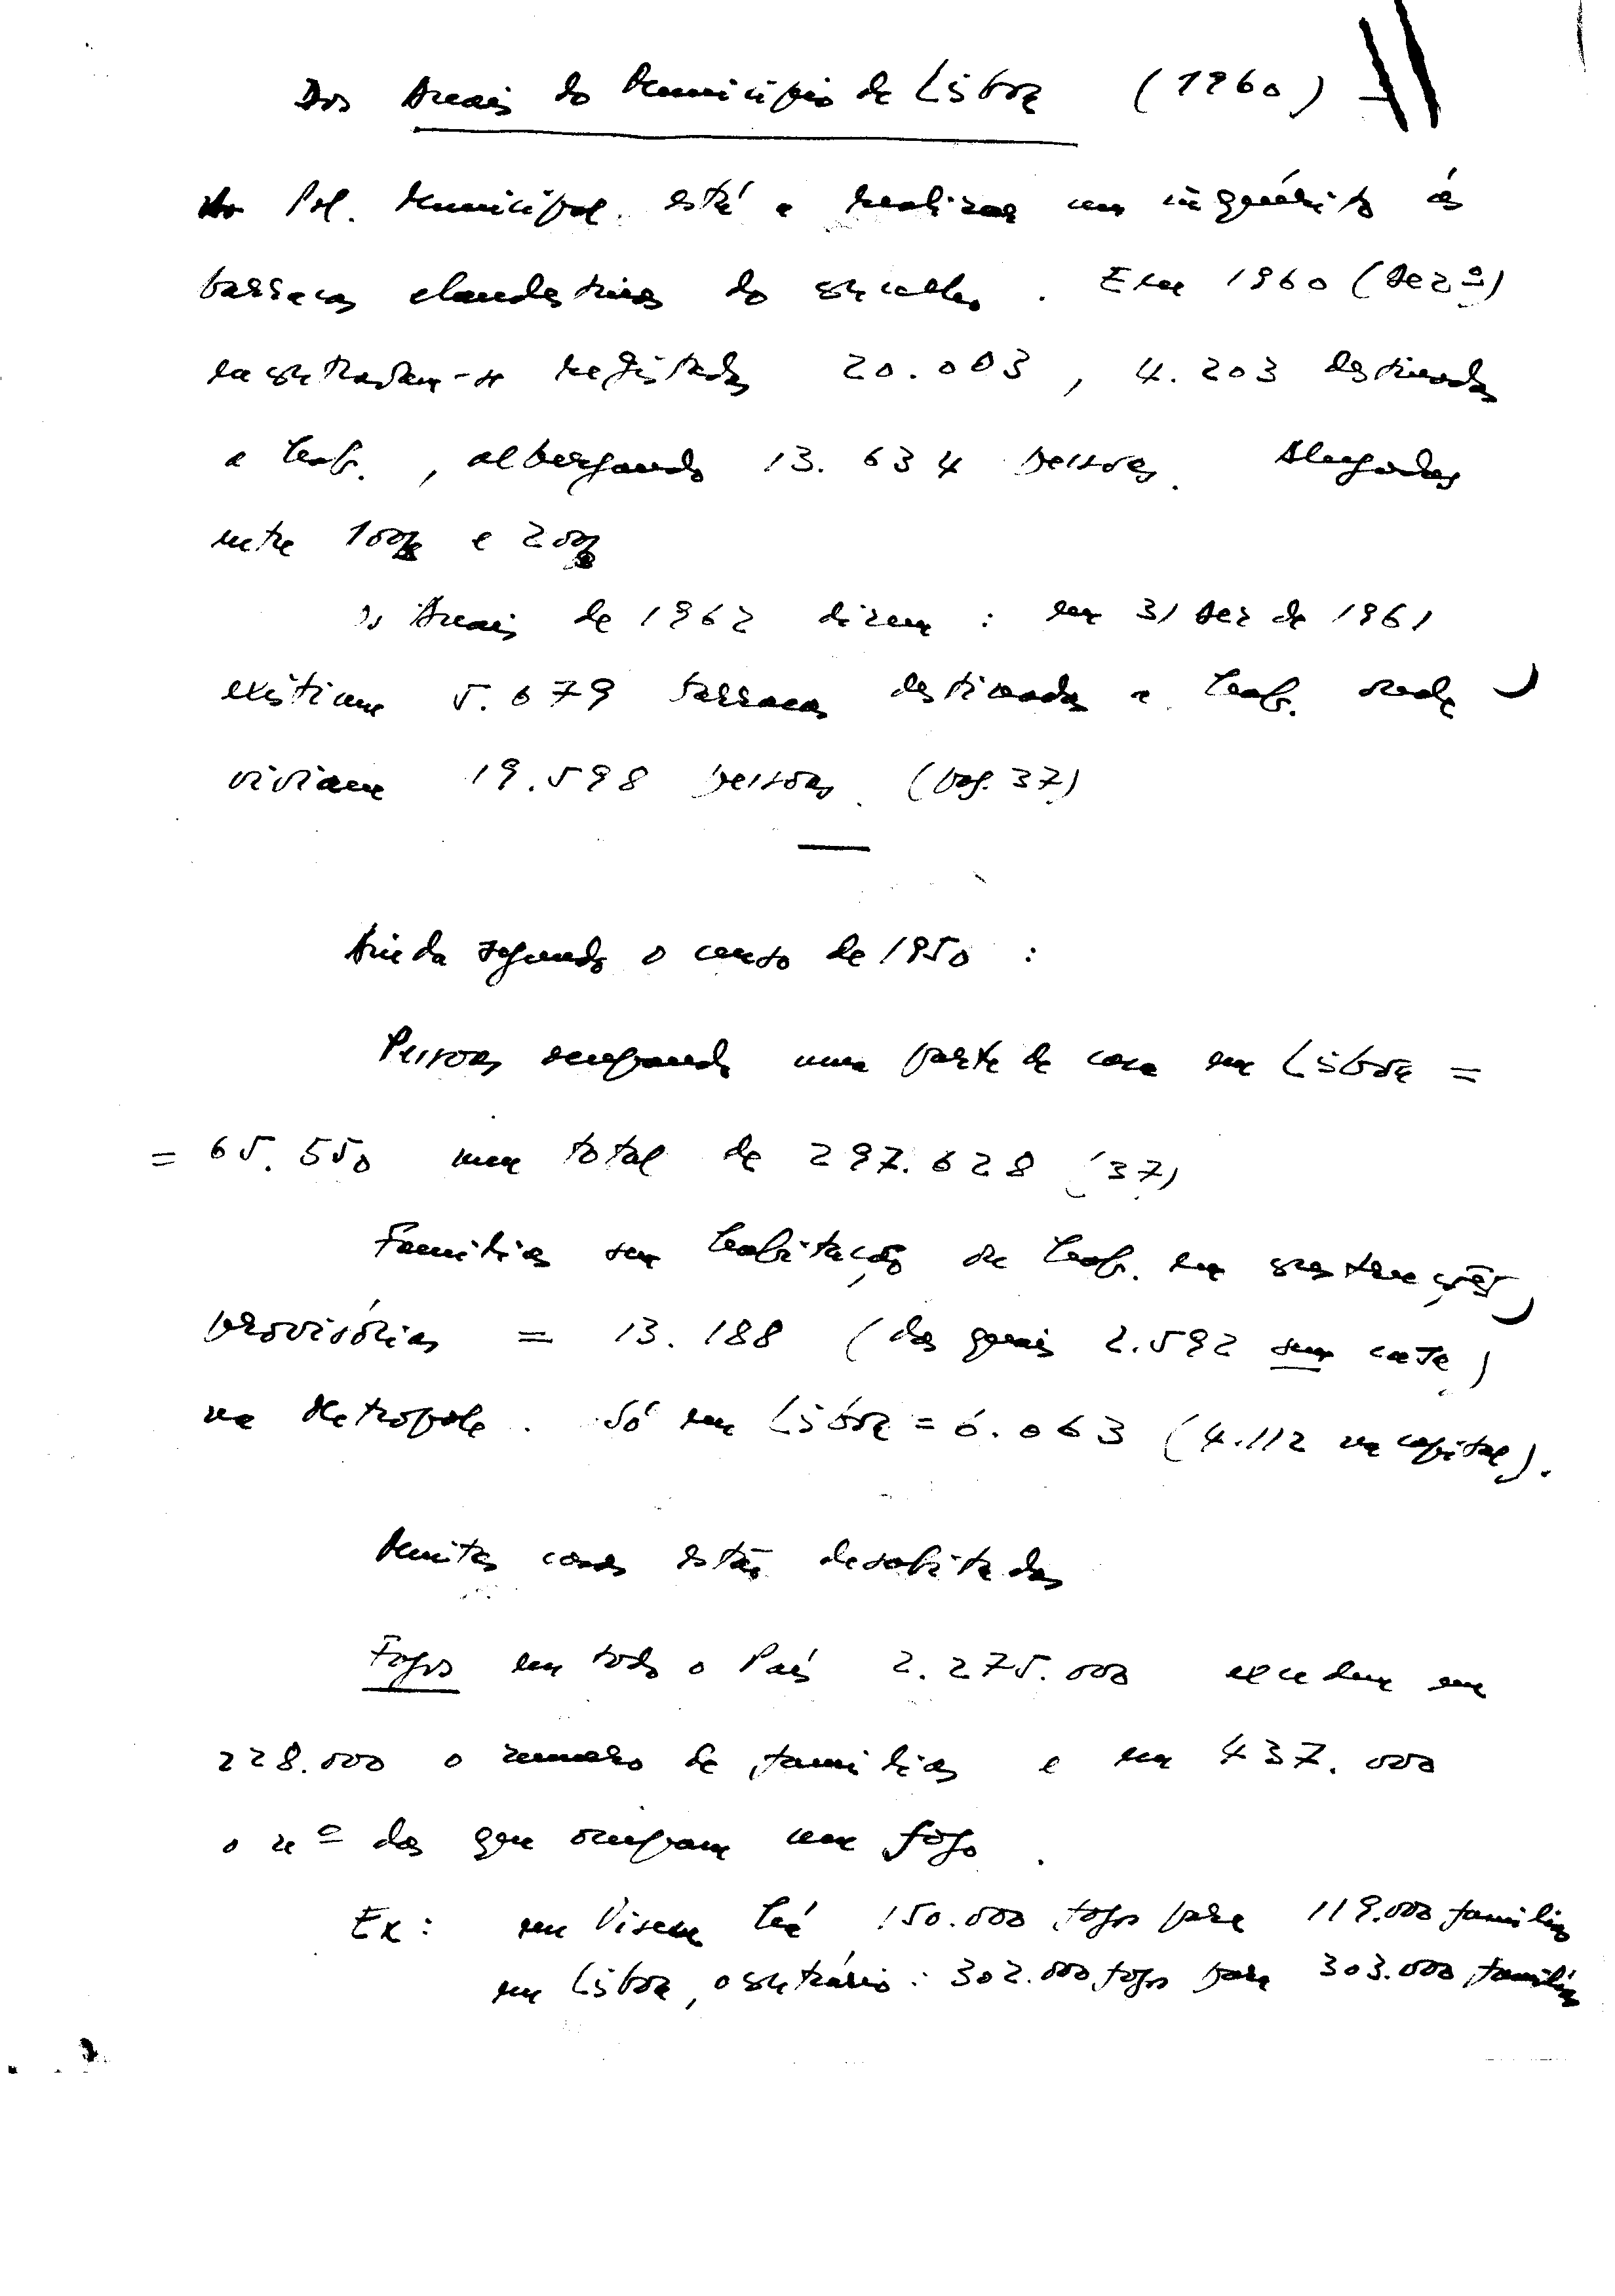 Dos Anais do Município de Lisboa (1960) –
A Pol. Municipal está a realizar um inquérito ás
barracas clandestinas do concelho. Em 1960 (dezº)
encontravam-se registadas 20.003, 4.203 destinadas
a hab., albergando 13.634 pessoas. Alugadas
entre 100$ e 200$
Os Anais de 1962 dizem: em 31 dez de 1961
existiam 5.679 barracas destinadas a hab. onde
viviam 19.598 pessoas. (pag. 37)
Ainda segundo o censo de 1950 :
Pessoas ocupando uma parte de casa em Lisboa =
= 65.550 num total de 297.628 (37)
Familias sem habitação ou hab. em construções
provisórias = 13.188 (das quais 2.592 sem casa)
na Metropole. Só em Lisboa = 6.063 (4.112 na capital).
Muitas casas estão desabitadas
Fogos em todo o País 2.275.000 excedem em
228.000 o numero de familias e em 437.000
o nº das que ocupam um fogo.
Ex: em Viseu há 150.000 fogos para 119.000 familias
em Lisboa, o contrário: 302.000 fogos para 303.000 familias